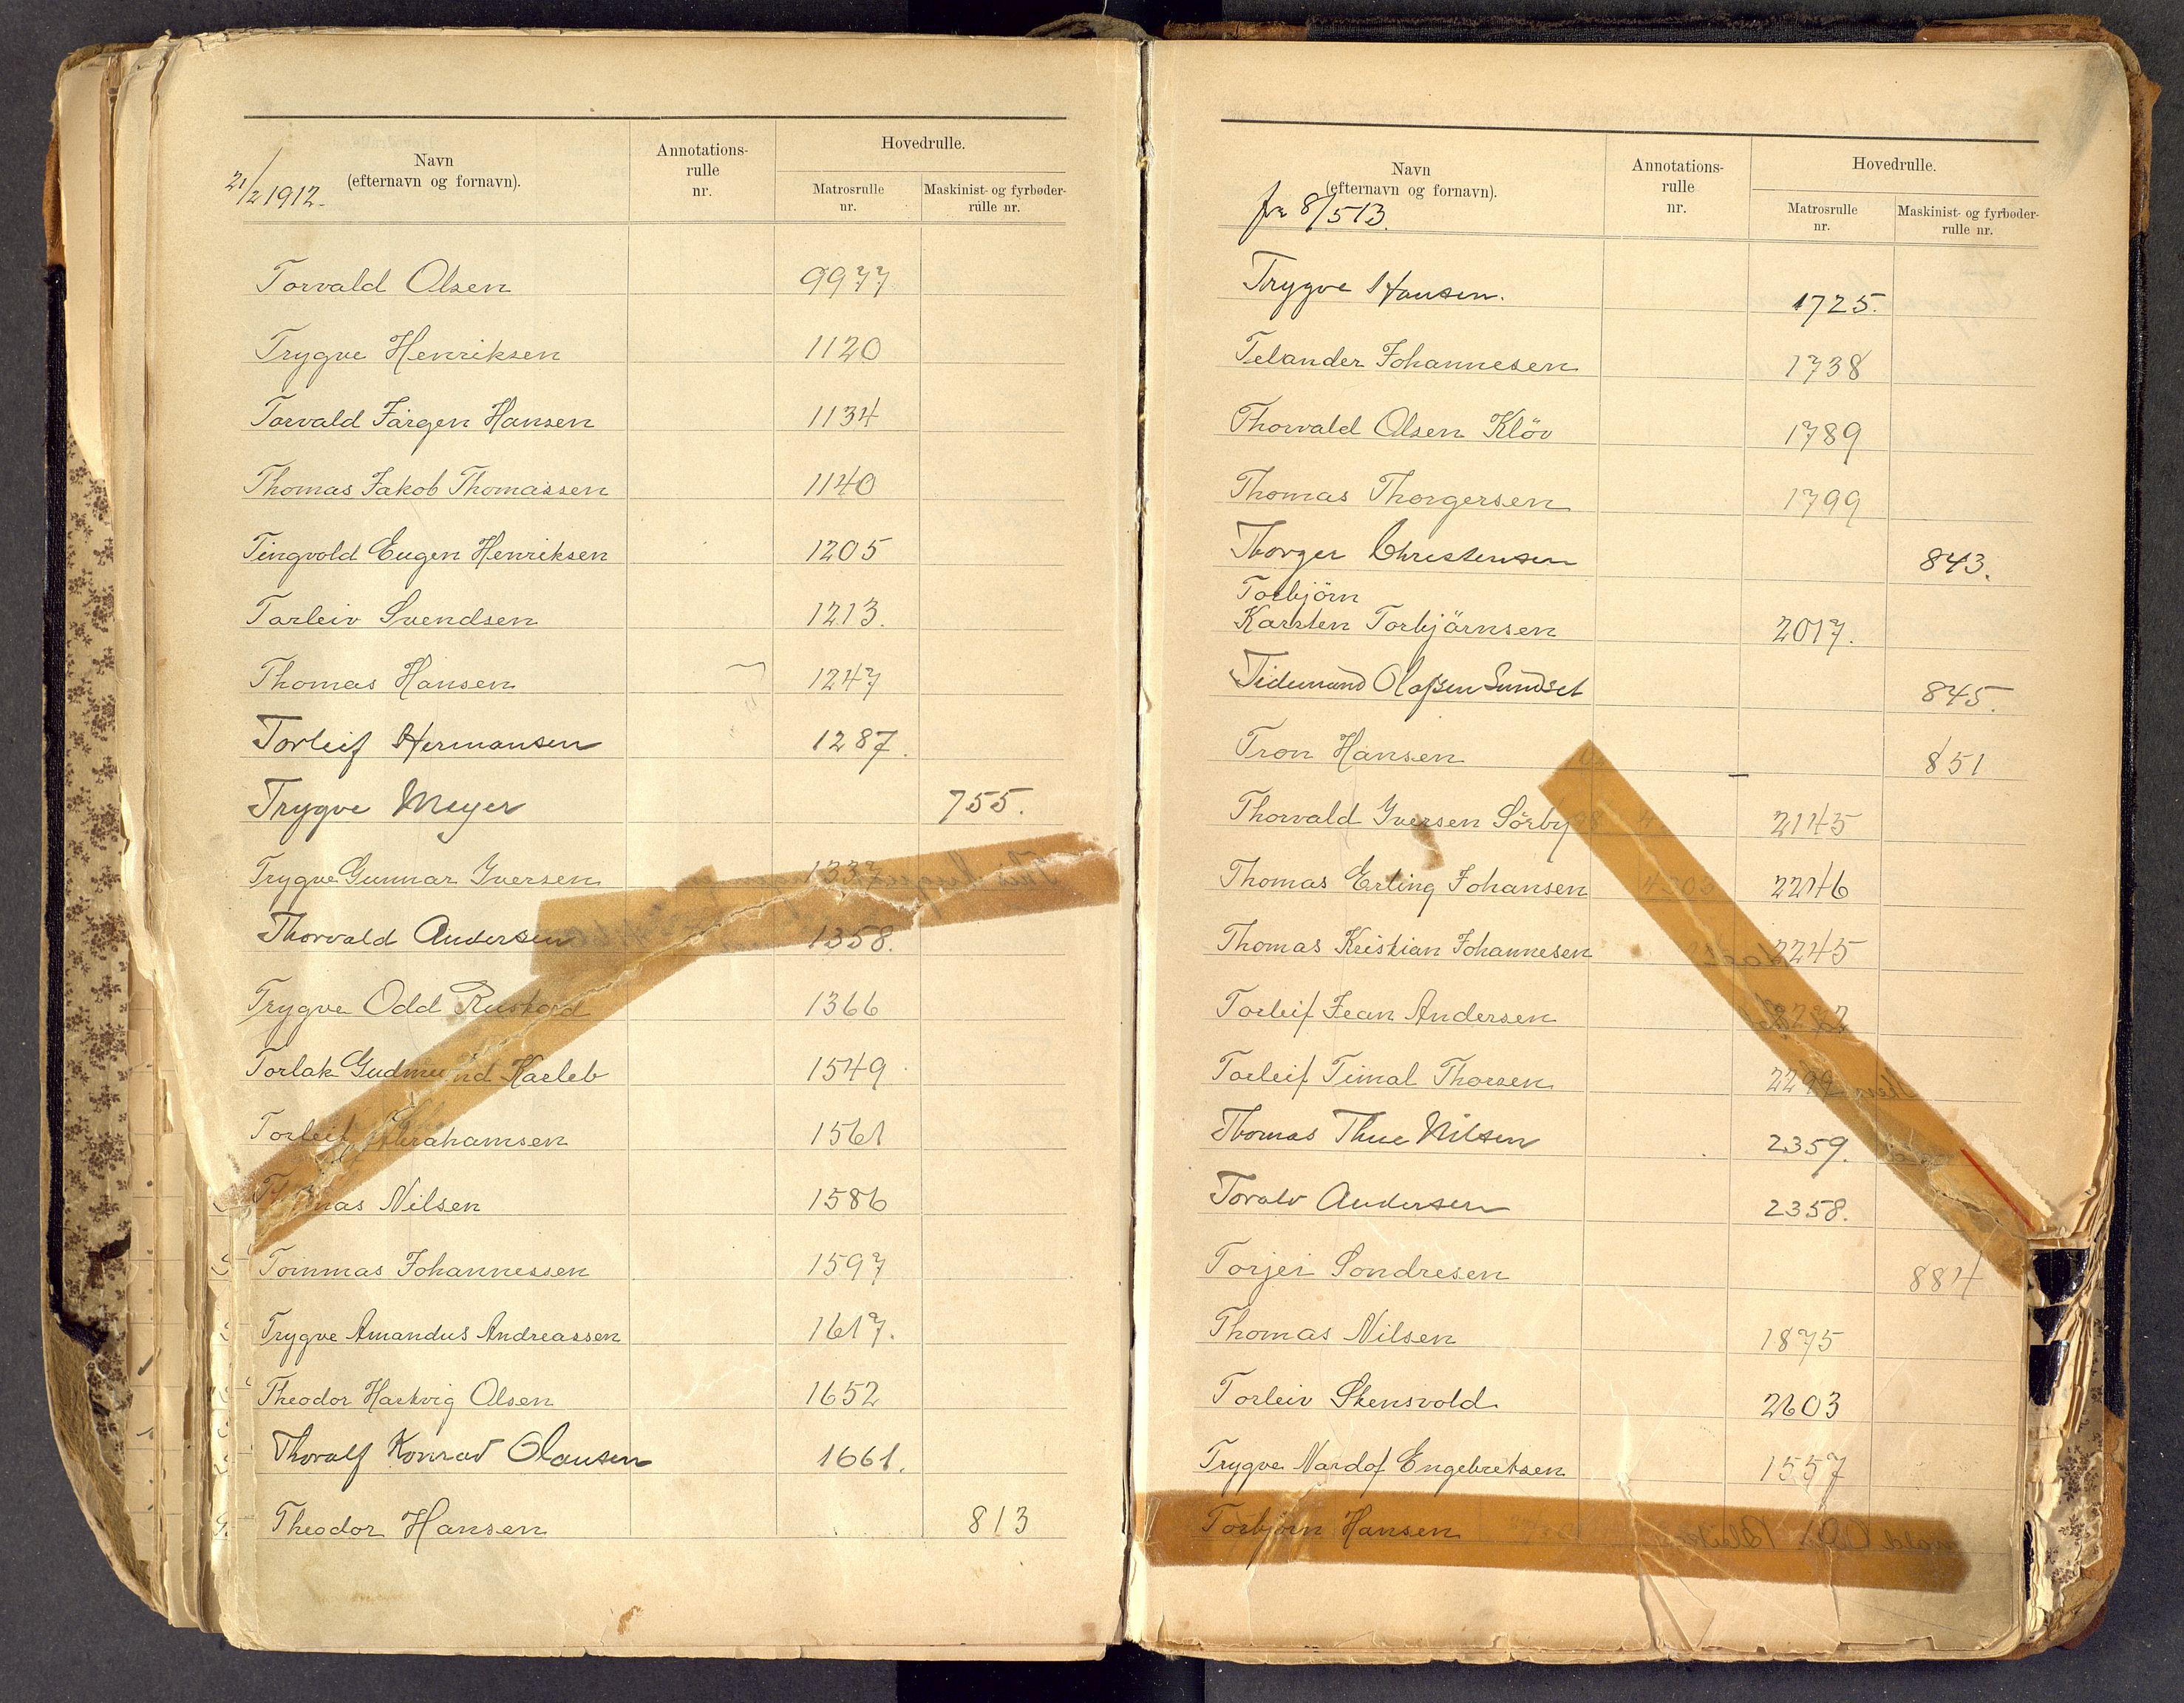 21/2 1912.
Navn
(efternavn og fornavn).
Annotations-
rulle
nr.
Hovedrulle.
Matrosrulle
nr.
Maskinist- og fyrbøder-
rulle nr.
Torvald Olsen 9977
Trygve Henriksen 1120
Torvald Jørgen Hansen 1134
Thomas Jakob Thomassen 1140
Tingvold Eugen Henriksen 1205
Torleiv Svendsen 1213.
Thomas Hansen 1247
Torleif Hermansen 1287.
Trygve Meyer 755.
Trygve Gunnar Iversen 1337
Thorvald Andersen 1358.
Trygve Odd 1366
Torlak Gudmund Karleb 1549
Torleif Abrahamsen 1561
Nilsen 1586
Tommas Johannessen 1597
Trygve Amandus Andreassen 1617.
Theodor Hartvig Olsen 1652
Thoralf Konrad Olausen 1661.
Theodor Hansen 813
Navn
(efternavn og fornavn).
fra 8/5 13.
Annotations-
rulle
nr.
Hovedrulle.
Matrosrulle
nr.
Maskinist- og fyrbøder-
rulle nr.
Trygve Hansen. 1725.
Telander Johannesen 1738
Thorvald Olsen Kløv 1789
Thomas Thorgersen 1799
Thorger Christensen 843.
Torbjörn
Karsten Torbjörnsen 2017.
Tidemand Olafsen Sundset 845.
Tron Hansen 851
Thorvald Iversen Sörby 2145
Thomas Erling Johansen 2246
Thomas Kristian Johannesen 2245
Torleif Jean Andersen
Torleif Timal Thorsen 2299
Thomas Thue Nilsen 2359.
Toralv Andersen 2358.
Torjei Sondresen 884
Thomas Nilsen 1875
Torleiv Stensvold 2603
Trygve Nardof Engebretsen 1557
Torbjørn Hansen